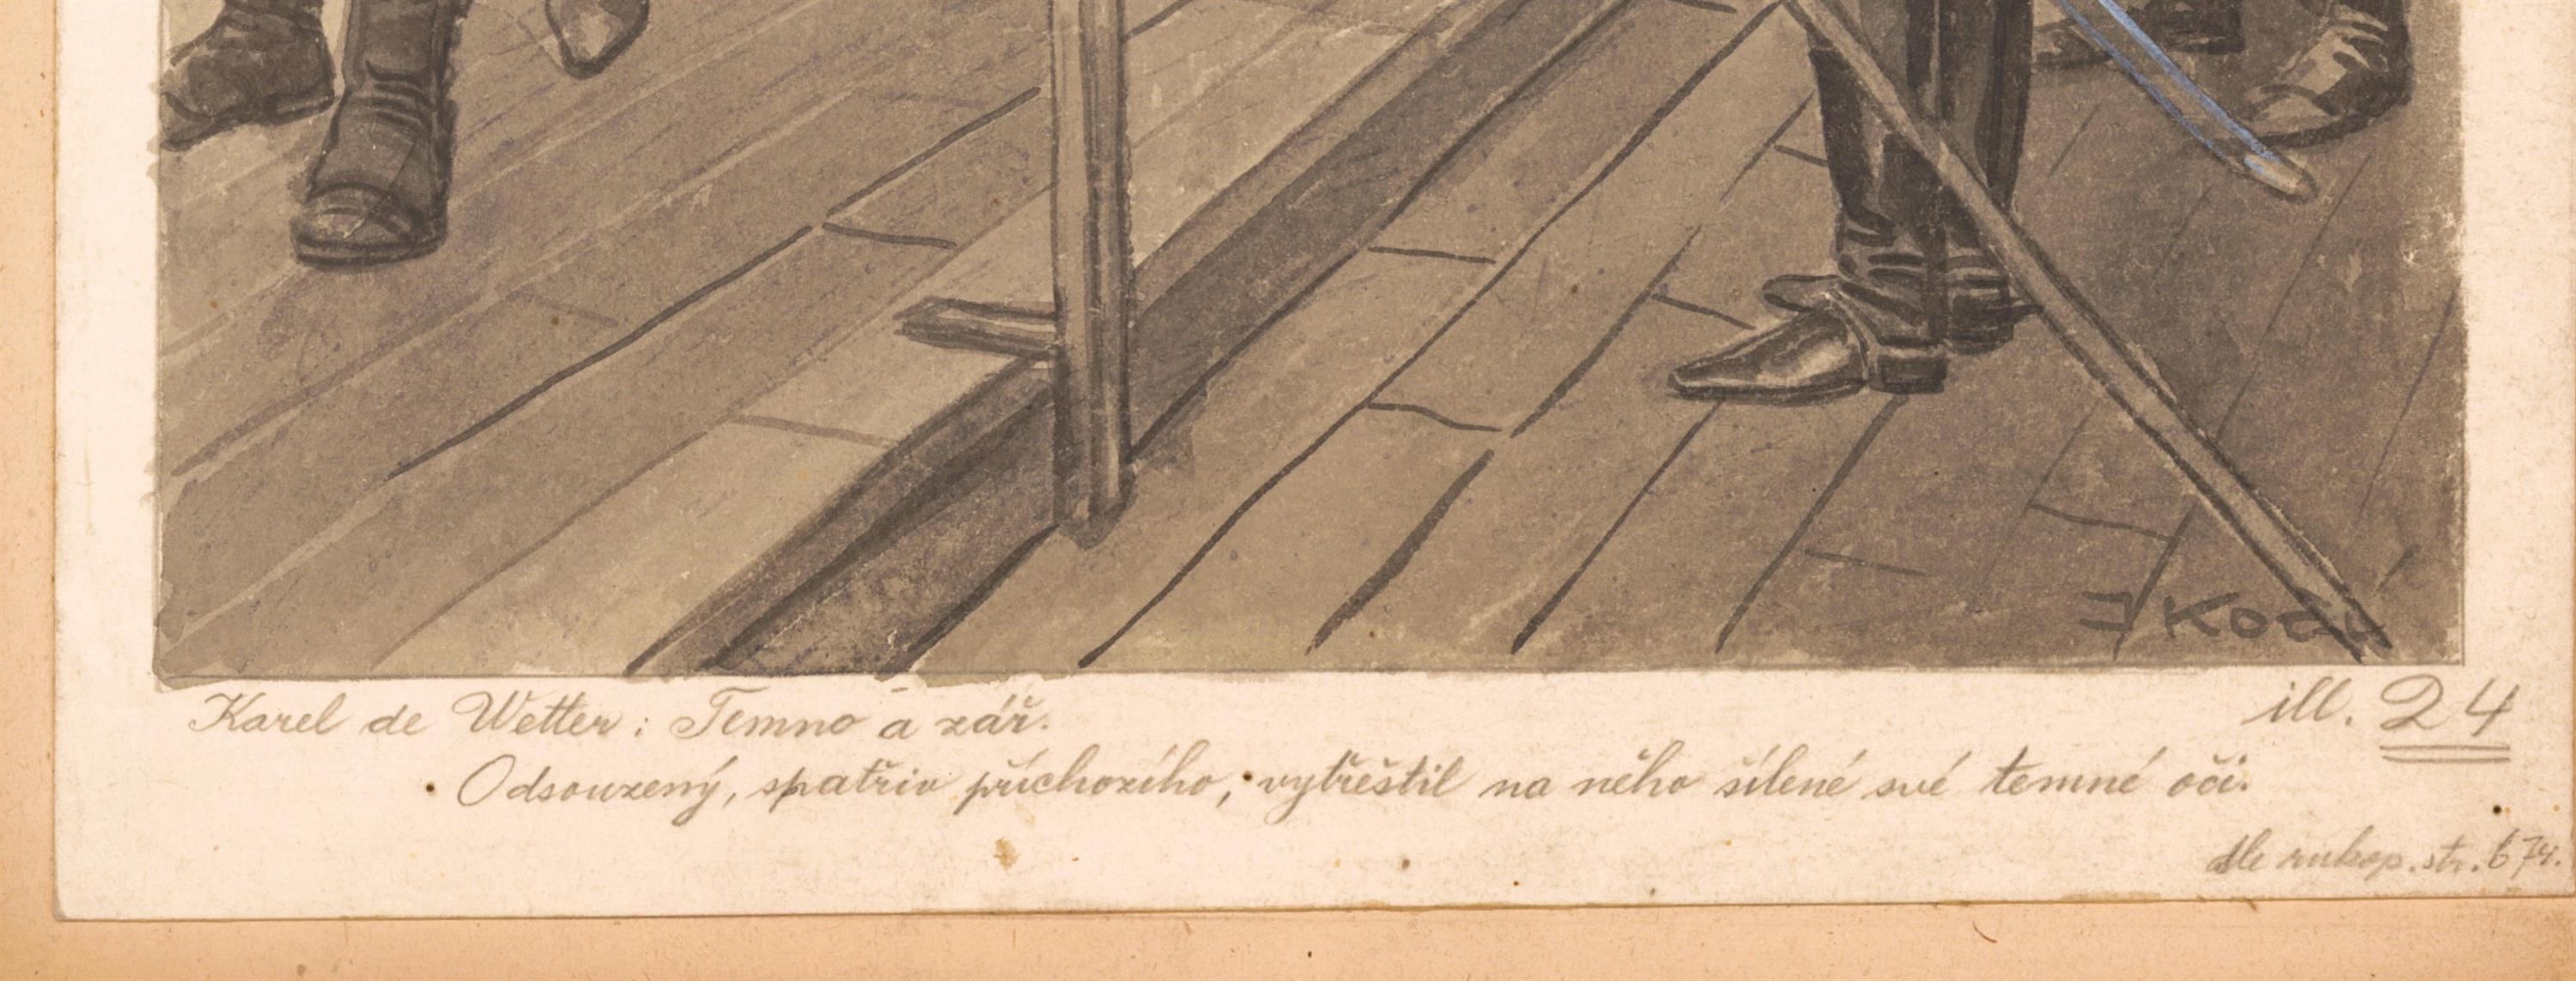 J Koch
Karel de Wetter: Temno a zář.
ill. 24
Odsouzený, spatřiv příchozího, vytřeštil na něho šílené své temné oči.
dle rukop. str. 674.